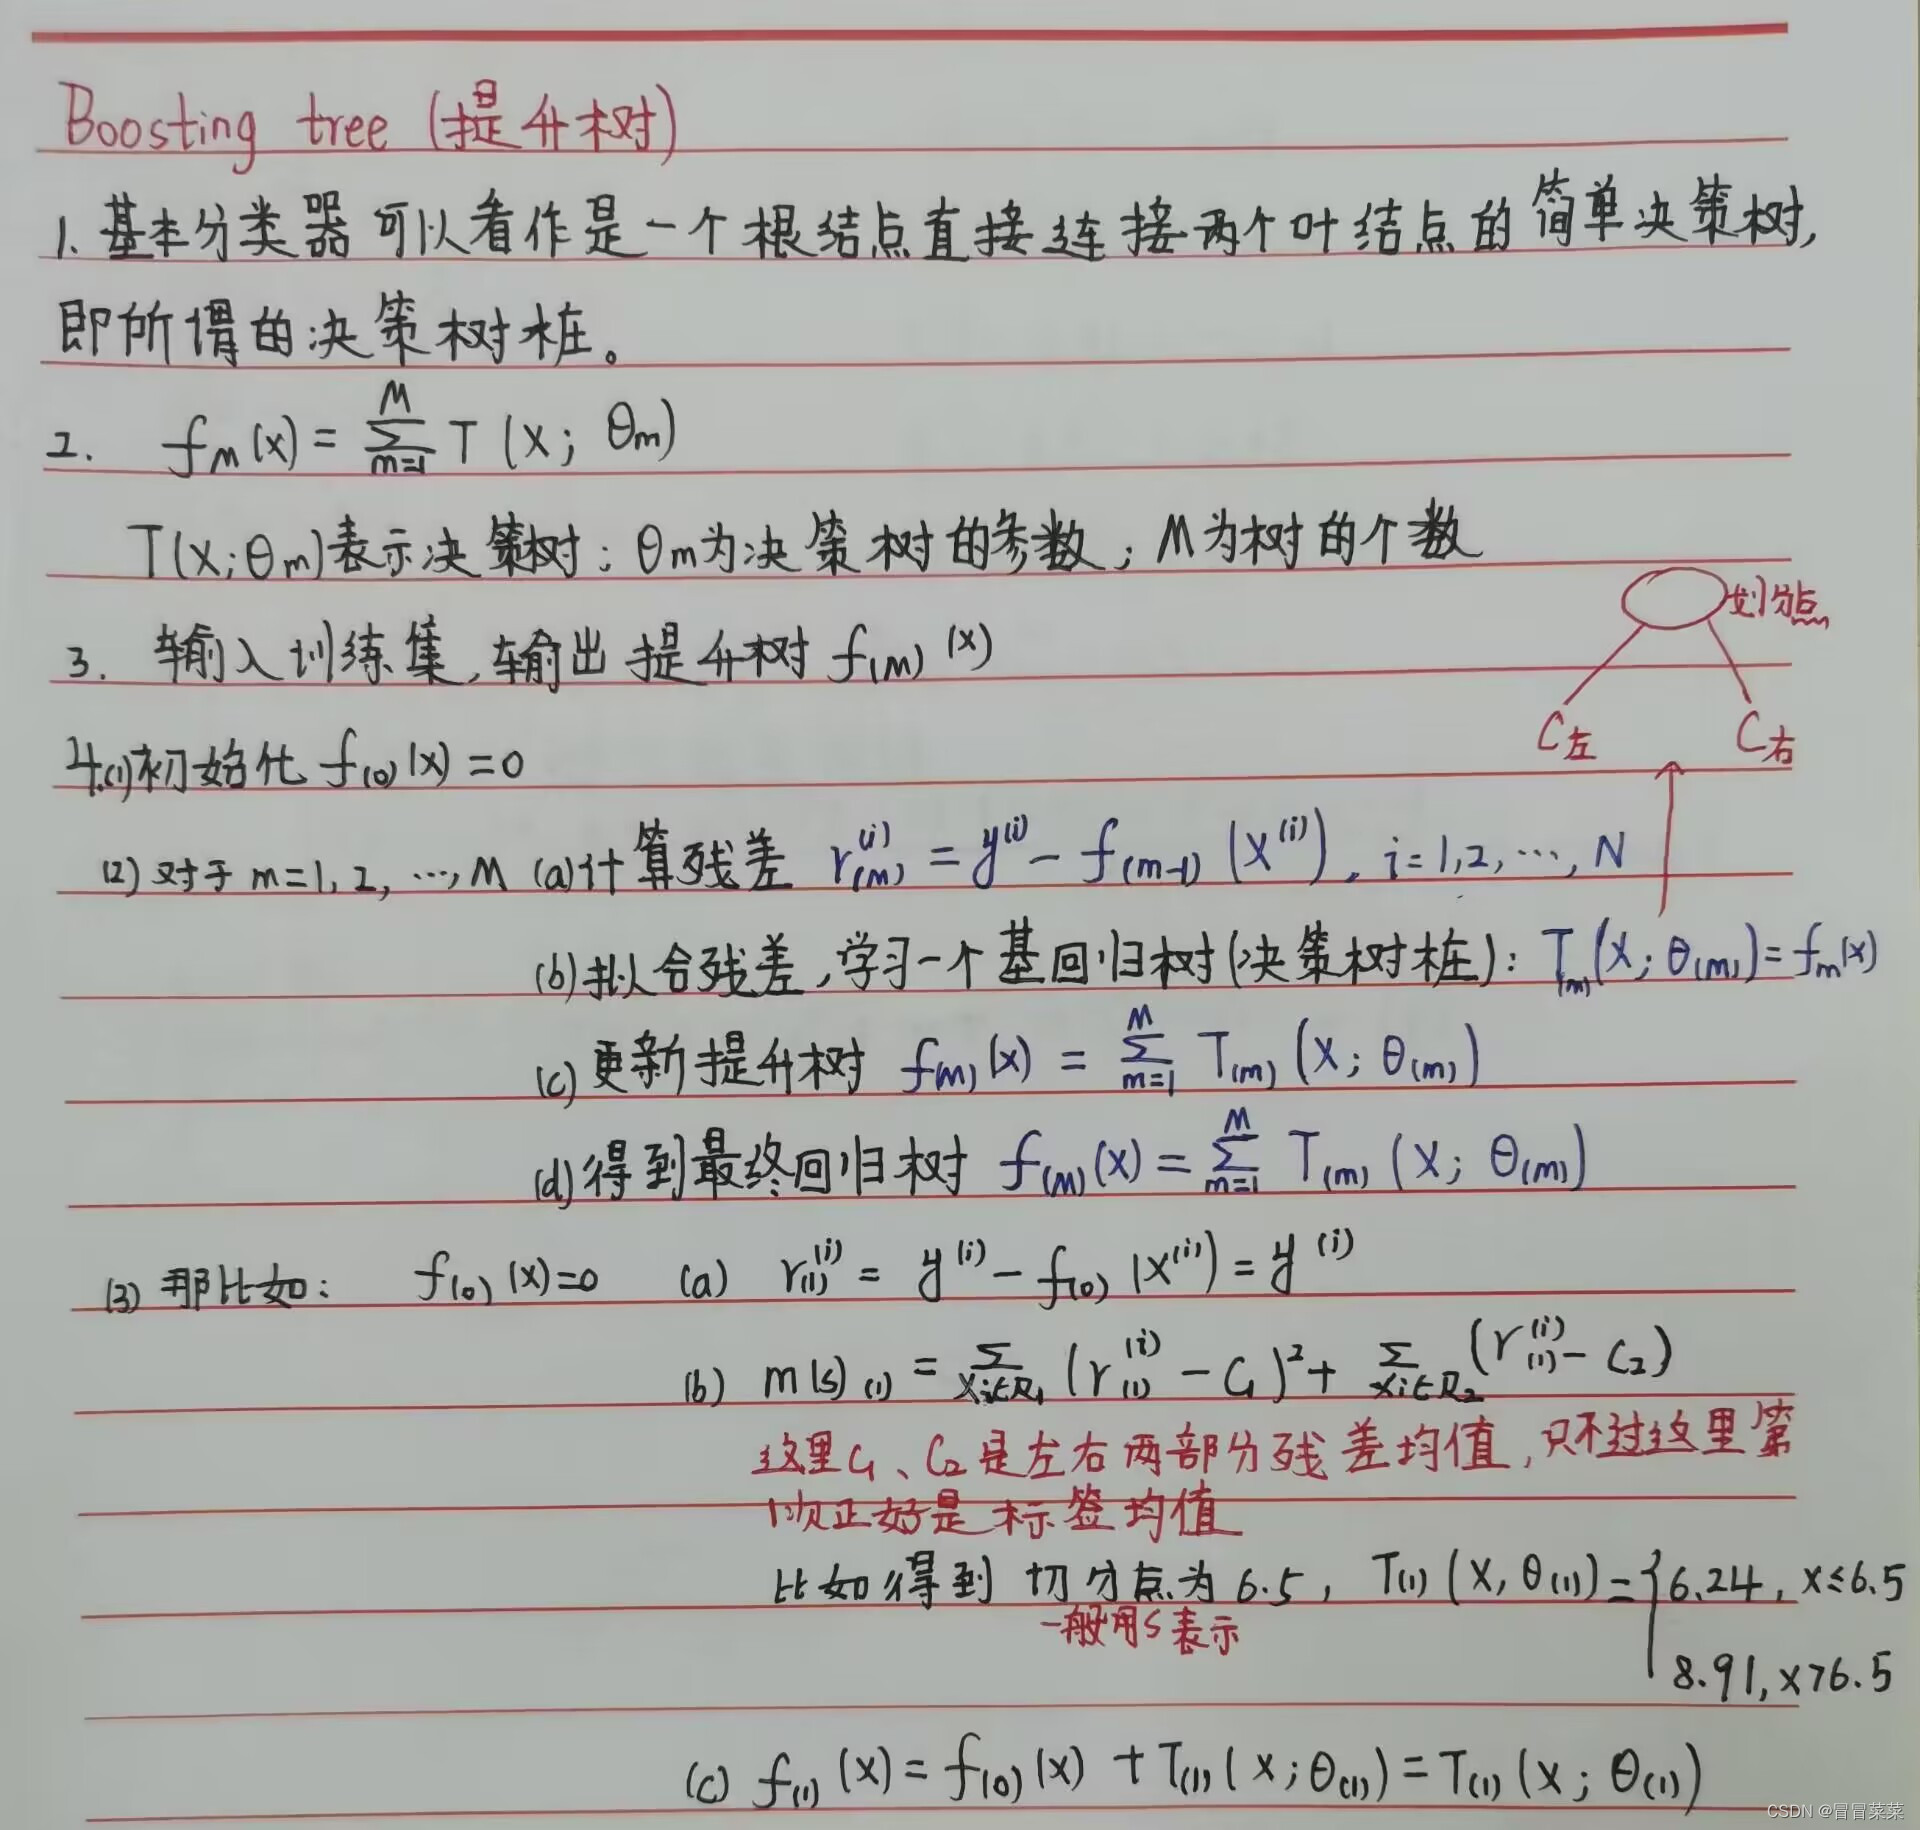 Boosting tree (提升树)
1. 基本分类器可以看作是一个根结点直接连接两个叶结点的简单决策树,
即所谓的决策树桩。
2. f_M(x) = Σ_{m=1}^{M} T(x; θ_m)
T(x; θ_m)表示决策树; θ_m为决策树的参数; M为树的个数
划分点
3. 输入训练集, 输出提升树 f_(M)(x)
C左 C右
4.(1)初始化 f_(0)(x)=0
(2) 对于 m=1, 2, …, M (a)计算残差 r_(m)^(i) = y^(i) - f_(m-1)(x^(i)), i=1,2,…,N
(b)拟合残差,学习一个基回归树(决策树桩): T_(m)(x; θ_(m))=f_m(x)
(c)更新提升树 f_(m)(x) = Σ_{m=1}^{M} T_(m)(x; θ_(m))
(d)得到最终回归树 f_(M)(x) = Σ_{m=1}^{M} T_(m)(x; θ_(m))
(3) 那比如: f_(0)(x)=0 (a) r_(1)^(i) = y^(i) - f_(0)(x^(i)) = y^(i)
(b) m(s)_(1) = Σ_{xi∈R_1} (r_(1)^(i) - C_1)^2 + Σ_{xi∈R_2} (r_(1)^(i) - C_2)
这里C_1、C_2是左右两部分残差均值,只不过这里第
1次正好是标签均值
比如得到切分点为6.5, T_(1)(x, θ_(1)) = {6.24, x≤6.5
一般用s表示
8.91, x>6.5
(c) f_(1)(x) = f_(0)(x) + T_(1)(x; θ_(1)) = T_(1)(x; θ_(1))
CSDN @冒冒菜菜